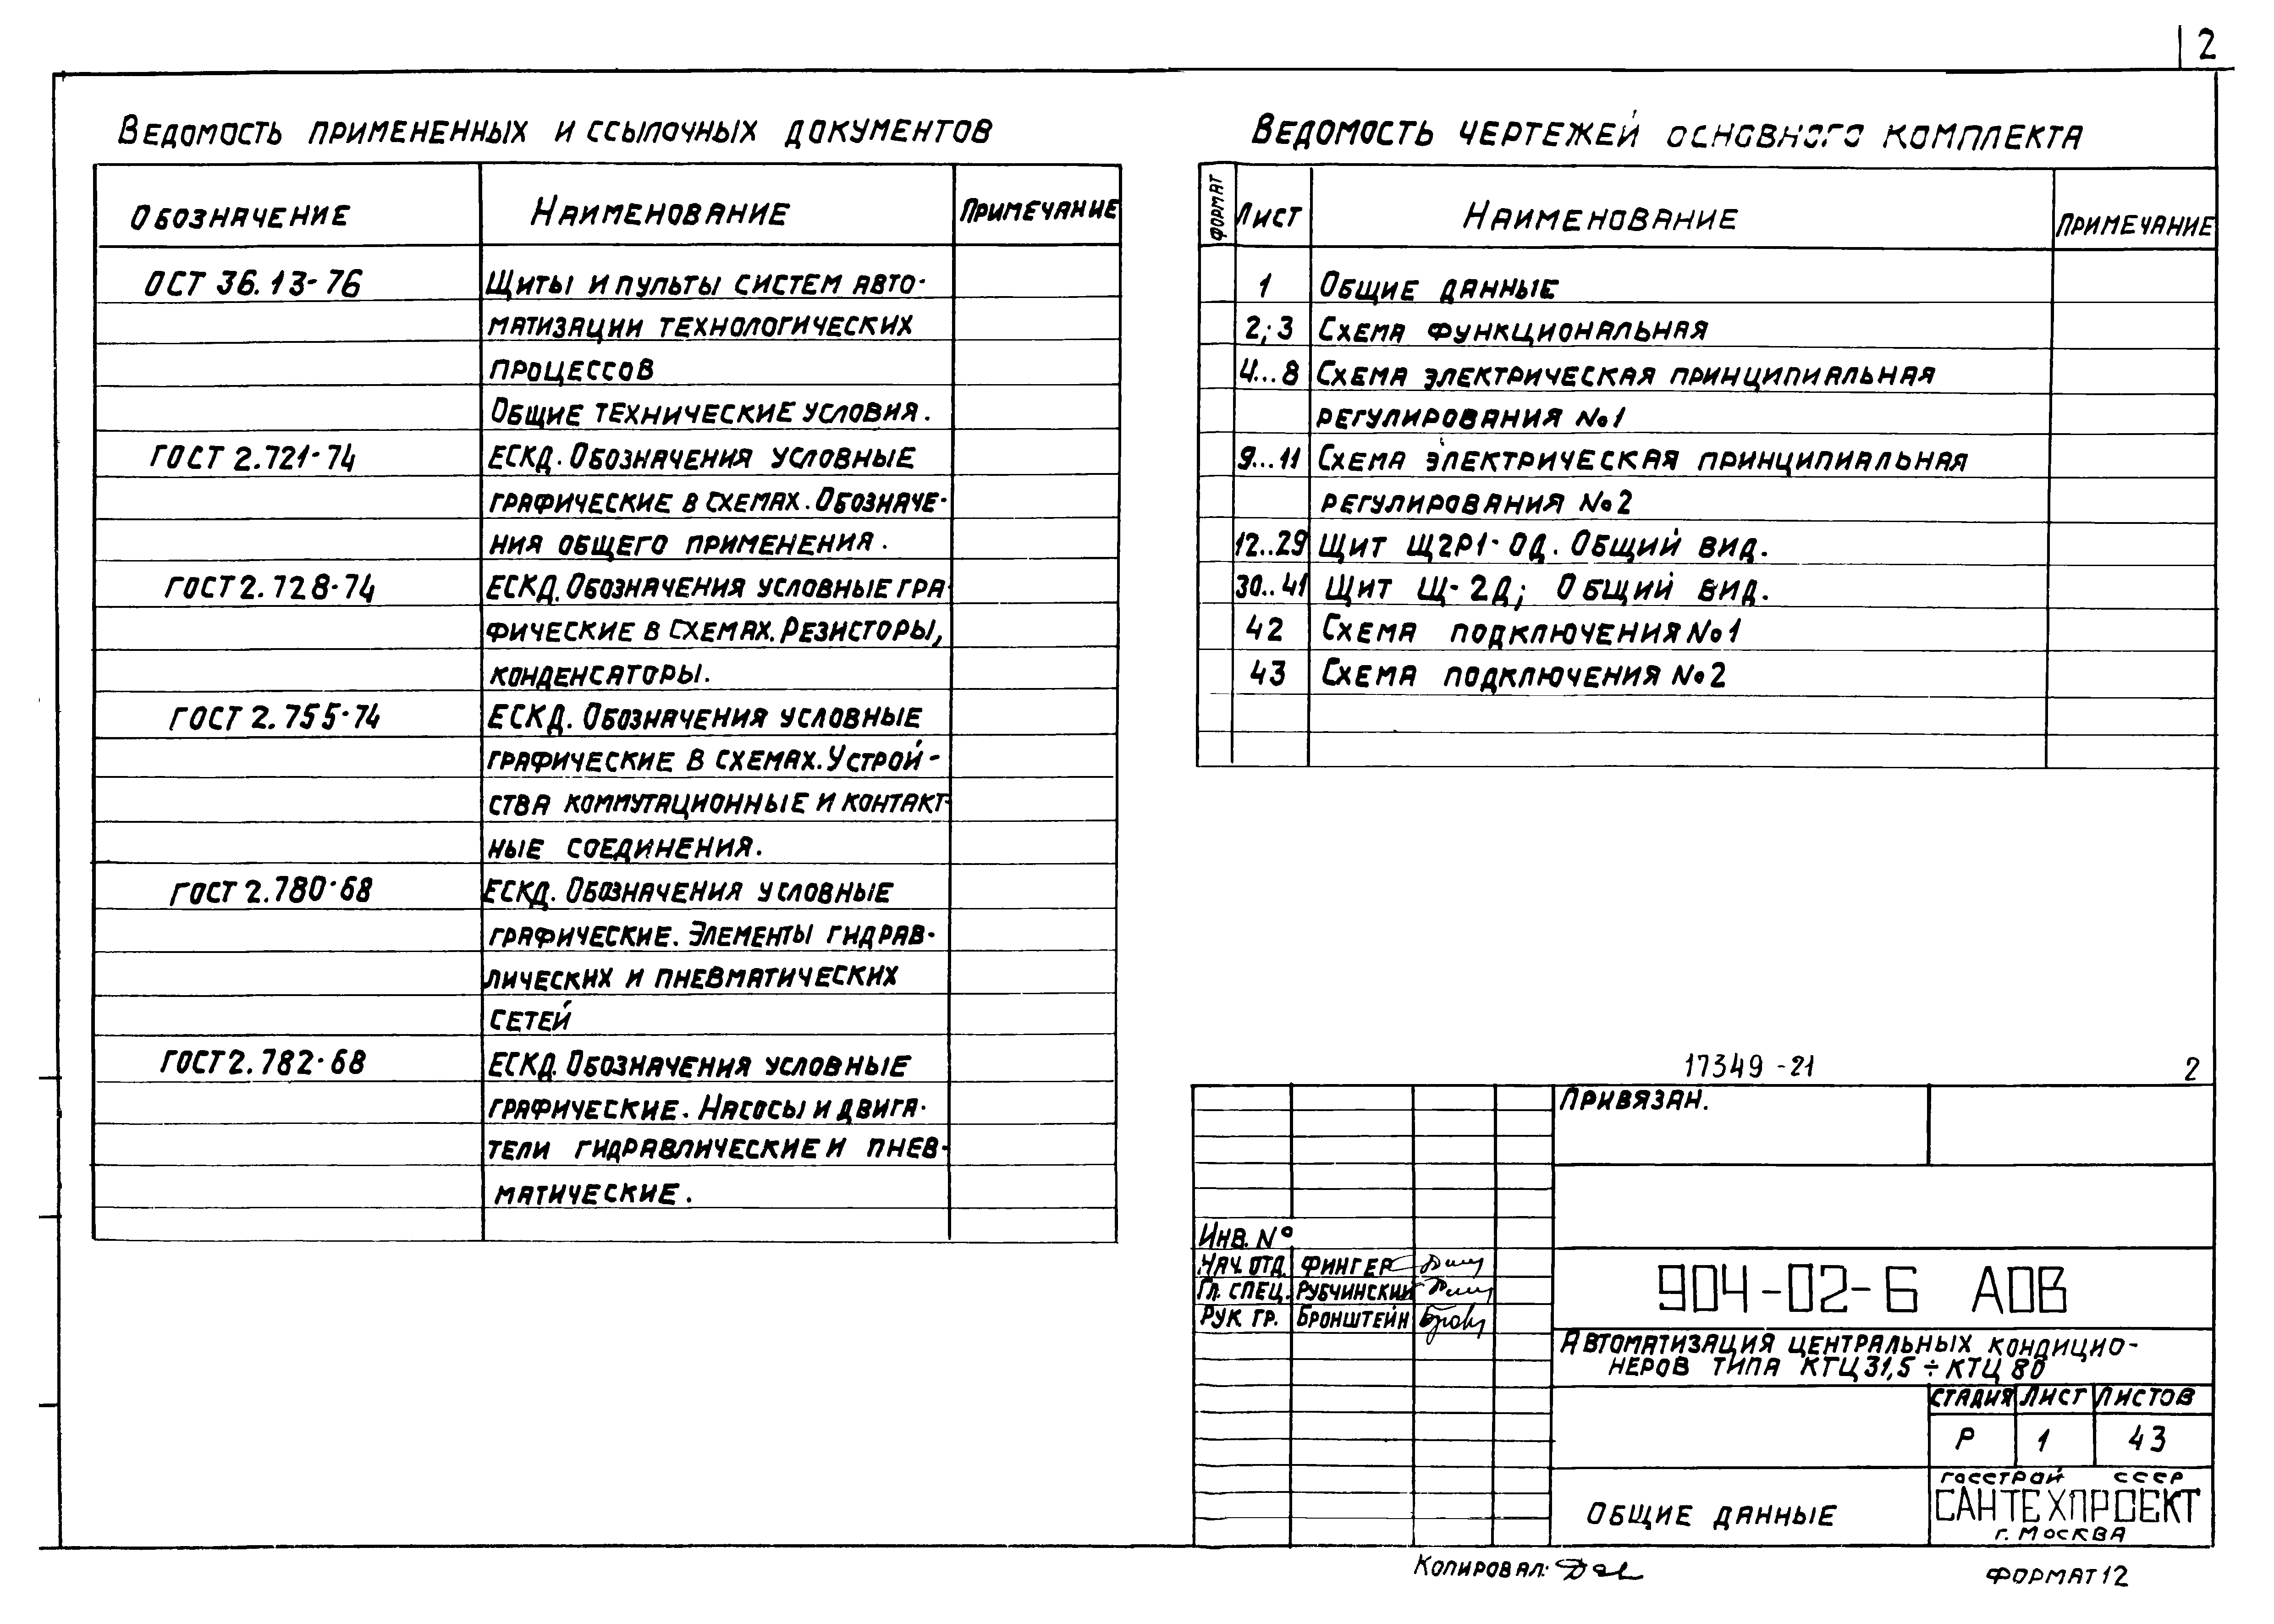 2
Ведомость примененных и ссылочных документов
Обозначение Наименование Примечание
ОСТ 36.13-76 Щиты и пульты систем авто-
матизации технологических
процессов
Общие технические условия.
ГОСТ 2.721-74 ЕСКД. Обозначения условные
графические в схемах. Обозначе-
ния общего применения.
ГОСТ 2.728-74 ЕСКД. Обозначения условные гра-
фические в схемах. Резисторы,
конденсаторы.
ГОСТ 2.755-74 ЕСКД. Обозначения условные
графические в схемах. Устрой-
ства коммутационные и контакт-
ные соединения.
ГОСТ 2.780-68 ЕСКД. Обозначения условные
графические. Элементы гидрав-
лических и пневматических
сетей
ГОСТ 2.782-68 ЕСКД. Обозначения условные
графические. Насосы и двига-
тели гидравлические и пнев-
матические.
Ведомость чертежей основного комплекта
Формат Лист Наименование Примечание
1 Общие данные
2; 3 Схема функциональная
4...8 Схема электрическая принципиальная
регулирования №1
9...11 Схема электрическая принципиальная
регулирования №2
12..29 Щит Щ2Р1-0Д. Общий вид.
30..41 Щит Щ-2Д; Общий вид.
42 Схема подключения №1
43 Схема подключения №2
17349-21 2
Привязан.
Инв. №
Нач. отд. Фингер
Гл. спец. Рубчинский
Рук. гр. Бронштейн
904-02-6 АОВ
Автоматизация центральных кондицио-
неров типа КТЦ 31,5 ÷ КТЦ 80
Стадия Лист Листов
Р 1 43
Общие данные
Госстрой СССР
САНТЕХПРОЕКТ
г. Москва
Копировал:
Формат 12